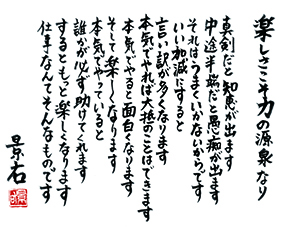 楽しさこそ力の源泉なり
真剣だと知恵が出ます
中途半端だと愚痴が出ます
それはうまくいかないからです
いい加減にすると
言い訳が多くなります
本気でやれば大抵のことはできます
本気でやると面白くなります
そして楽しくなります
本気でやっていると
誰かが必ず助けてくれます
するともっと楽しくなります
仕事なんてそんなもの。です
景石